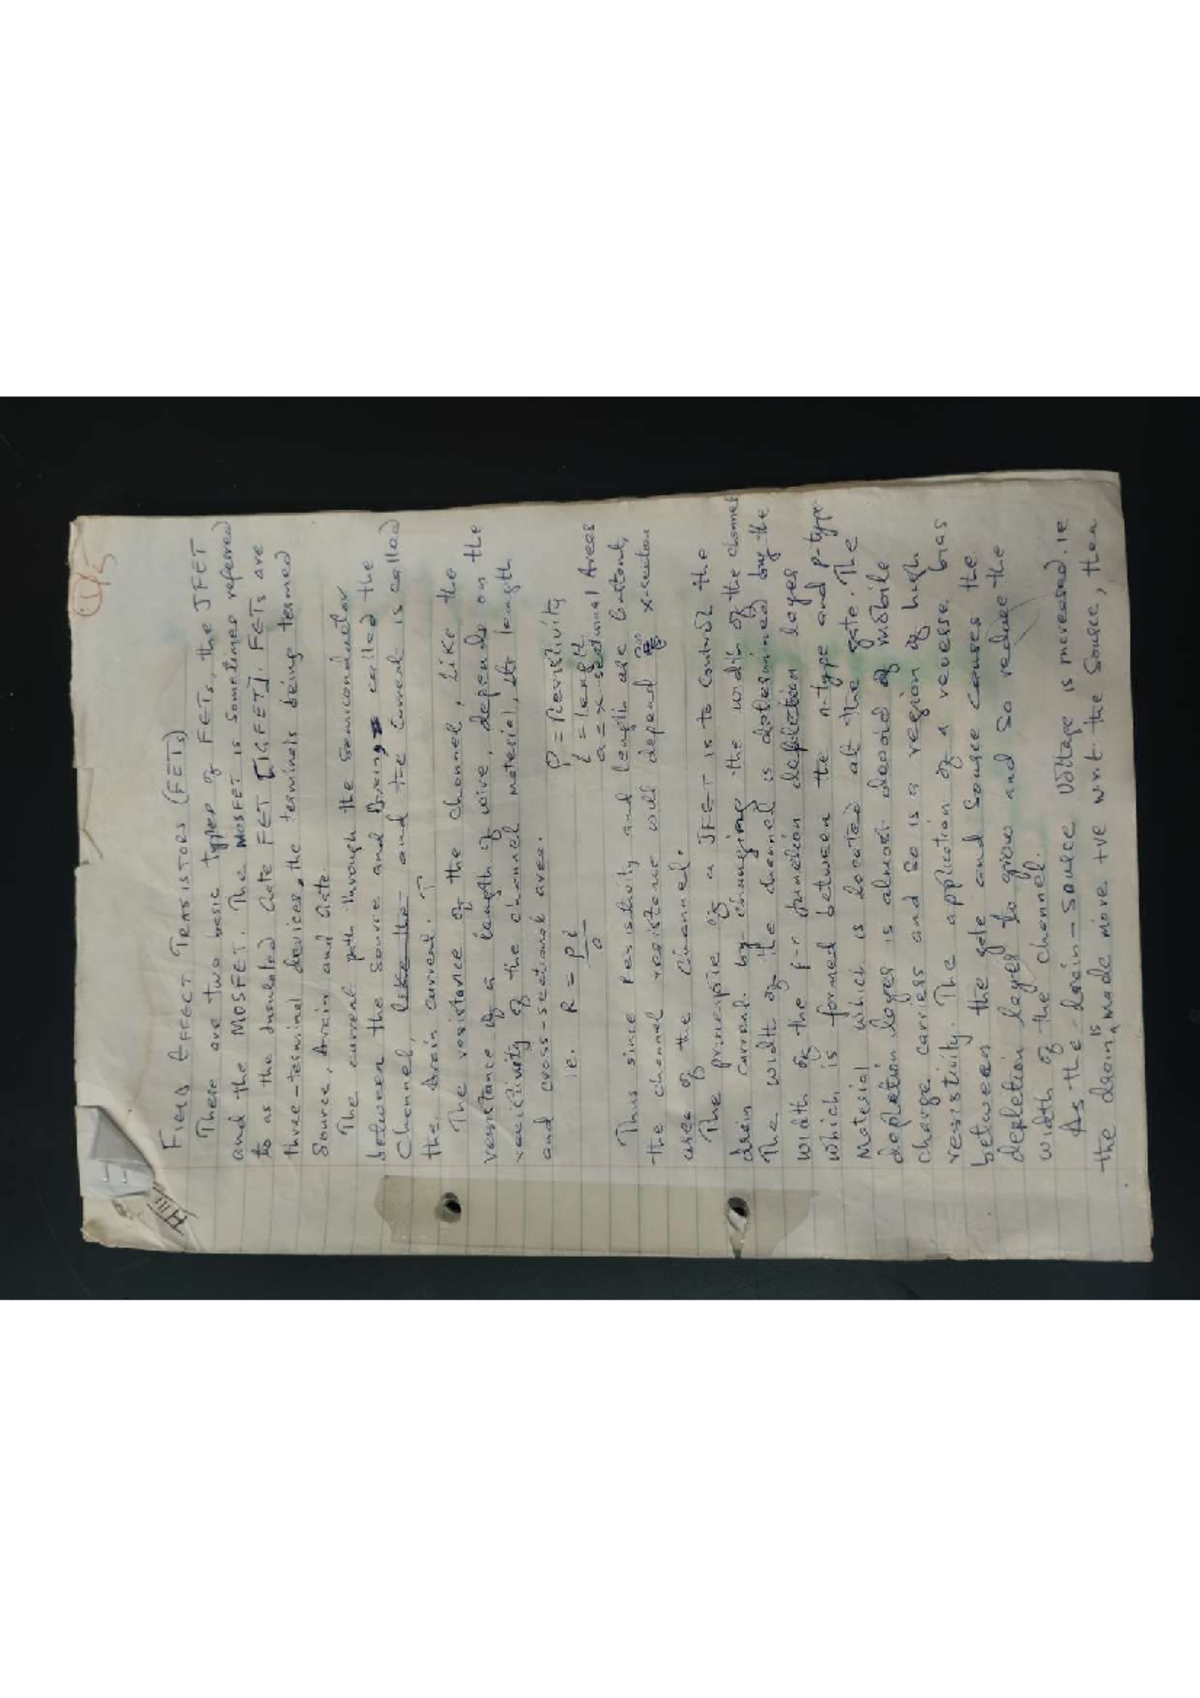 1/5
FIELD EFFECT TRANSISTORS (FETs)
There are two basic types of FETs, the JFET
and the MOSFET. The MOSFET is sometimes referred
to as the Insulated Gate FET [IGFET]. FETs are
three-terminal devices, the terminals being termed
Source, drain and Gate.
The current path through the semiconductor
between the source and drain is called the
Channel, like the and the current is called
the drain current.
The resistance of the channel, Like the
resistance of a length of wire, depends on the
resistivity of the channel material, its length
and cross-sectional area.
ρ = Resistivity
ie. R = ρℓ/a
ℓ = length
a = x-sectional Areas
Thus since resistivity and length are Constant,
the channel resistance will depend on x-section
area of the channel.
The principle of a JFET is to Control the
drain current by changing the width of the channel
The width of the channel is determined by the
width of the p-n junction depletion layer
which is formed between the n-type and p-type
Material which is located at the gate. The
depletion layer is almost devoid of mobile
charge carriers and so is a region of high
resistivity. The application of a reverse bias
between the gate and source causes the
depletion layer to grow and so reduce the
width of the channel.
As the drain-source voltage is increased. ie
the drain is made more +ve wrt the source, then